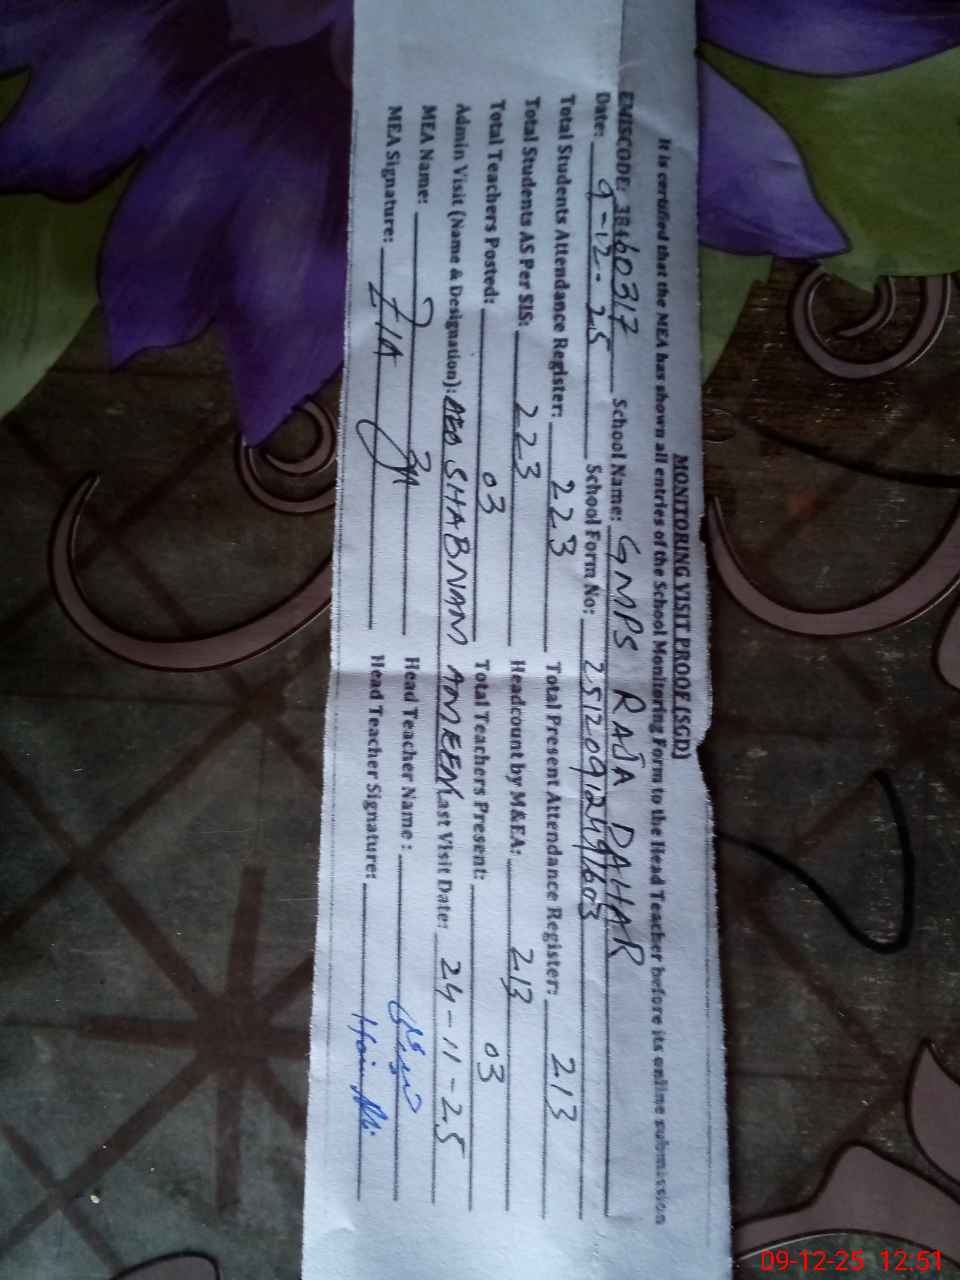 MONITORING VISIT PROOF (SGD)
It is certified that the MEA has shown all entries of the School Monitoring Form to the Head Teacher before its online submission
EMISCODE: 38460317 School Name: GMPS RAJA DAHAR
Date: 9-12-25 School Form No:
Total Students Attendance Register: 223 Total Present Attendance Register: 213
Total Students AS Per SIS: 223 Headcount by M&EA: 213
Total Teachers Posted: 03 Total Teachers Present: 03
Admin Visit (Name & Designation): AEO SHABNAM AMEEN Last Visit Date: 24-11-25
MEA Name: Head Teacher Name:
MEA Signature: ZIA Head Teacher Signature:
09-12-25 12:51